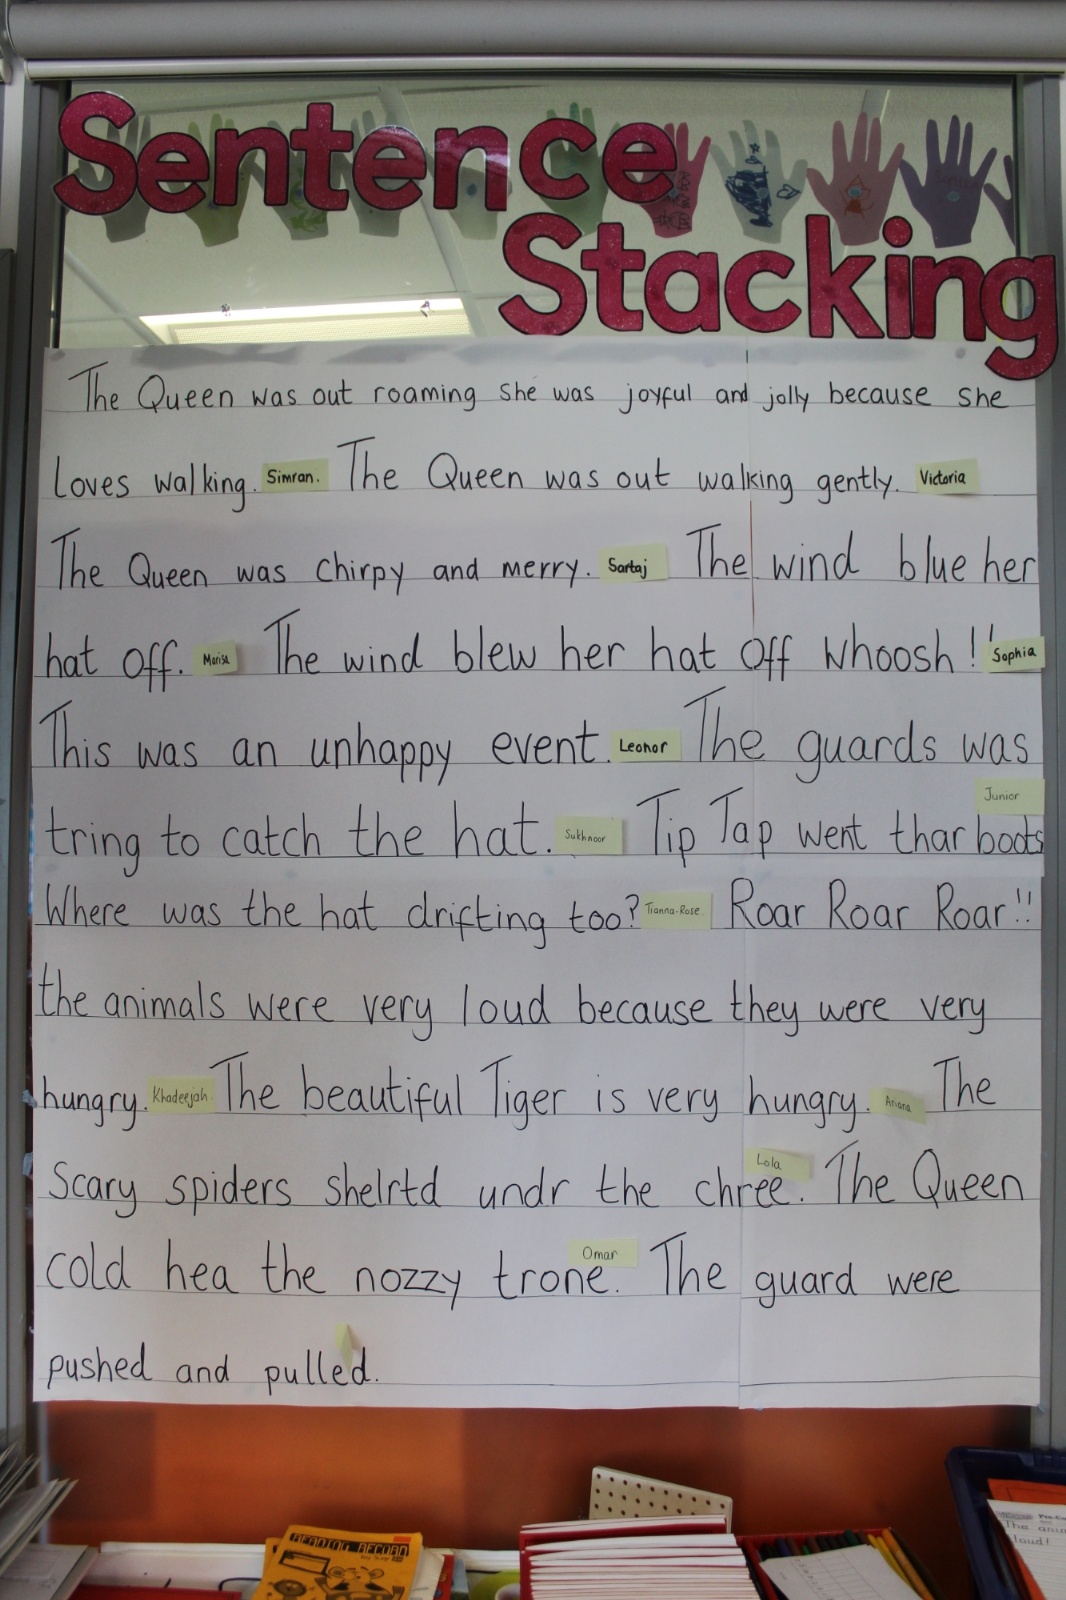 Sentence
Stacking
The Queen was out roaming she was joyful and jolly because she
loves walking. Simran. The Queen was out walking gently. Victoria
The Queen was chirpy and merry. Sartaj The wind blue her
hat off. Marisa The wind blew her hat off whoosh!! Sophia
This was an unhappy event. Leonor The guards was
Junior
tring to catch the hat. Sukhnoor Tip Tap went thar boots
Where was the hat drifting too? Tianna-Rose Roar Roar Roar!!
the animals were very loud because they were very
hungry. Khadeejah The beautiful Tiger is very hungry. Ariana The
Lola
Scary spiders shelrtd undr the chree. The Queen
Omar
cold hea the nozzy trone. The guard were
pushed and pulled.
READING RECORD